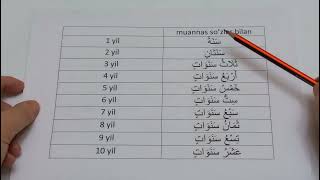 muannas so'zlar bilan
1 yil سَنَةٌ
2 yil سَنَتَانِ
3 yil ثَلَاثُ سَنَوَاتٍ
4 yil أَرْبَعُ سَنَوَاتٍ
5 yil خَمْسُ سَنَوَاتٍ
6 yil سِتُّ سَنَوَاتٍ
7 yil سَبْعُ سَنَوَاتٍ
8 yil ثَمَانُ سَنَوَاتٍ
9 yil تِسْعُ سَنَوَاتٍ
10 yil عَشْرُ سَنَوَاتٍ